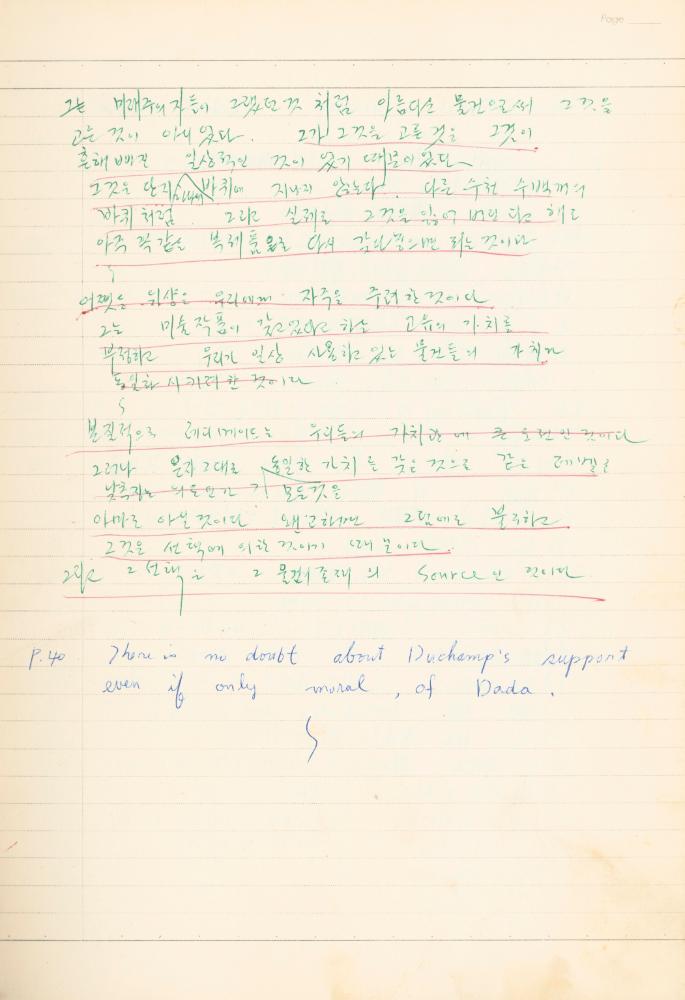 Page
그는 미래주의자들이 그랬던것 처럼 아름다운 물건으로써 그것을
고른 것이 아니었다. 그가 그것을 고른 것은 그것이
흔해빠진 일상적인 것이 었기 때문이었다.
그것은 단지 바퀴에 지나지 않는다. 다른 수천 수백개의
바퀴처럼. 그리고 실제로 그것을 잃어 버린다고 해도
아주 꼭같은 복제품으로 다시 갖다놓으면 되는 것이다
어쨋든 뒤샹은 우리에게 자주 주려한것이다
그는 미술작품이 갖고있다고 하는 고유의 가치를
부정하고 우리가 일상 사용하고 있는 물건들의 가치와
동일화 시키려한 것이다.
본질적으로 레디메이드는 우리들의 가치관에 큰 도전인 것이다
그러나 문자그대로 동일한 가치를 갖은 것으로 같은 레벨로
낮추자는 모든것을
아마도 아닐것이다 왜냐하면 그럼에도 불구하고
그것은 선택에 의한 것이기 때문이다.
그리고 그 선택은 그 물건존재의 Source인 것이다
P.40 There is no doubt about Duchamp's support
even if only moral, of Dada.